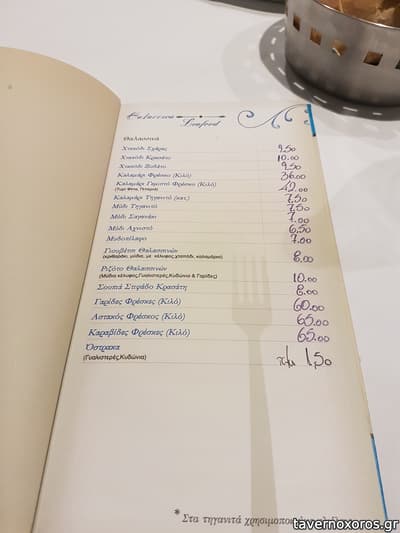 Θαλασσινά
Seafood
Θαλασσινά
Χταπόδι Σχάρας 9,50
Χταπόδι Κρασάτο 10.00
Χταπόδι Ξυδάτο 9,50
Καλαμάρι Φρέσκο (Κιλό) 36.00
Καλαμάρι Γεμιστό Φρέσκο (Κιλό) 42.00
(Τυρί Φέτα, Πιπεριά)
Καλαμάρι Τηγανιτό (κατ) 7,50
Μύδι Τηγανιτό 7,50
Μύδι Σαγανάκι 7.00
Μύδι Αχνιστό 6,50
Μυδοπίλαφο 7.00
Γιουβέτσι Θαλασσινών 8.00
(κριθαράκι, μύδια, με κέλυφος,χταπόδι, καλαμάρι)
Ριζότο Θαλασσινών 10.00
(Μύδια κέλυφος,Γυαλιστερές,Κυδώνια & Γαρίδες)
Σουπιά Στιφάδο Κρασάτη 8.00
Γαρίδες Φρέσκες (Κιλό) 60.00
Αστακός Φρέσκος (Κιλό) 65.00
Καραβίδες Φρέσκες (Κιλό) 65.00
Όστρακα τεμ 1,50
(Γυαλιστερές,Κυδώνια)
* Στα τηγανιτά
tavernoxoros.gr